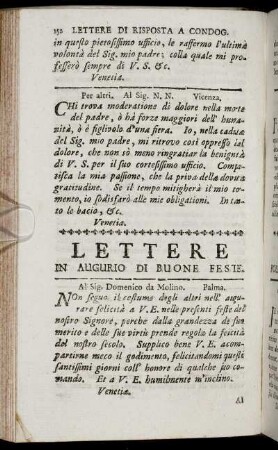 152 LETTERE DI RISPOSTA A CONDOG.
in questo pietosissimo ufficio, le raffermo l'ultima
volontà del Sig. mio padre; colla quale mi pro-
fesserò sempre di V. S. &c.
Venetia.
Per altri. Al Sig. N. N. Vicenza.
CHi trova moderatione di dolore nella morte
del padre, ò hà forze maggiori dell' huma-
nità, ò è figlivolo d'una fiera. Io, nella caduta
del Sig. mio padre, mi ritrovo così oppresso dal
dolore, che non sò meno ringratiar la benignità
di V. S. per il suo cortesissimo ufficio. Compa-
tisca la mia passione, che la priva della dovuta
gratitudine. Se il tempo mitigherà il mio tor-
mento, io sodisfarò alle mie obligationi. In tan-
to le bacio, &c.
Venetia.
LETTERE
IN AUGURIO DI BUONE FESTE.
Al Sig. Domenico da Molino. Palma.
NOn seguo il costume degli altri nell' augu-
rare felicità a V. E. nelle presenti feste del
nostro Signore, perche dalla grandezza de suo
merito e delle sue virtù prende regola la felicità
del nostro secolo. Supplico bene V. E. acom-
partirne meco il godimento, felicitandomi questi
santissimi giorni coll' honore di qualche suo co-
mando. Et a V. E. humilmente m'inclino.
Venetia.
Al